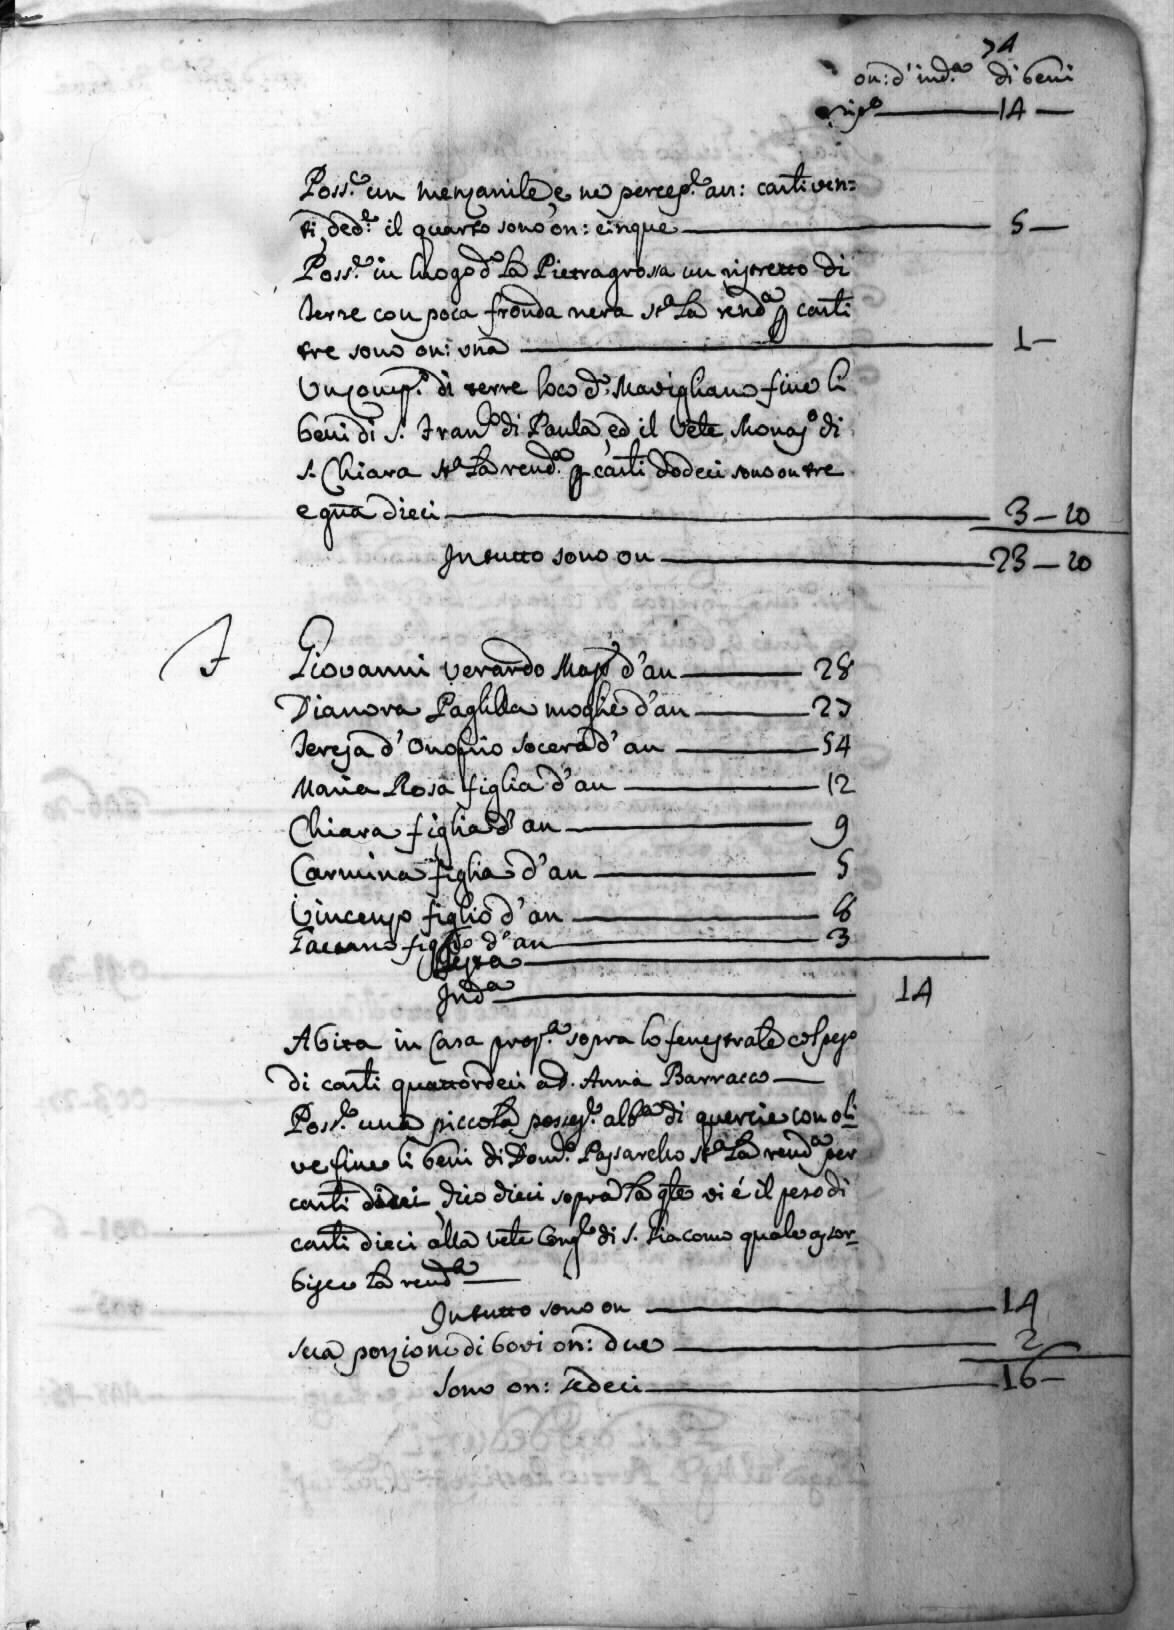 74
on: d'ind.a di beni
14
Poss.e un menzanile, e ne percep.e an: carli ven=
ti, ded.e il quarto sono on: cinque 5
Poss.e in luogo d.o la Pietragrossa un ristretto di
terre con poca fronda nera st.a la rend.a p carli
tre sono on: una 1
Un comp.o di terre loco d.o Mavigliano fine li
beni di S. Fran.co di Paula, ed il Vēle Monas.o di
S. Chiara st.a la rend.a p carli dodeci sono on tre
e gña dieci 3-10
In tutto sono on 23-10
Giovanni Verardo d'an 28
Dianora Paglilla moglie d'an 27
Teresa d'Onofrio socera d'an 54
Maria Rosa figlia d'an 12
Chiara figlia d'an 9
Carmina figlia d'an 5
Vincenzo figlio d'an 8
Gaetano figlio d'an 3
Testa
Ind.a 14
Abita in casa prop.a sopra lo fenestrale col peso
di carli quattordeci a D. Anna Barracco
Poss.e una piccola posses.e alb.a di quercie con oli
ve fine li beni di Dom.o Passarello st.a la rend.a per
carli dieci, dico dieci sopra la qle vi é il peso di
carli dieci alla Vēle Cong.e di S. Giacomo quale assor=
bisce la rend.a
In tutto sono on 14
sua porzione di bovi on: due 2
Sono on: sedeci 16